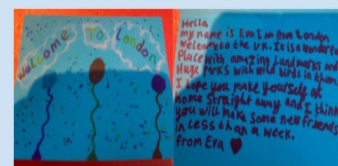 Welcome To London
Hello
my name is Era I am from London
Welcome to the UK. It is a wonderful
Place with amazing landmarks and
Huge parks with wild birds in them
I hope you make yourself at
home straight away and I think
you will make some new friends
in less than a week.
from Era